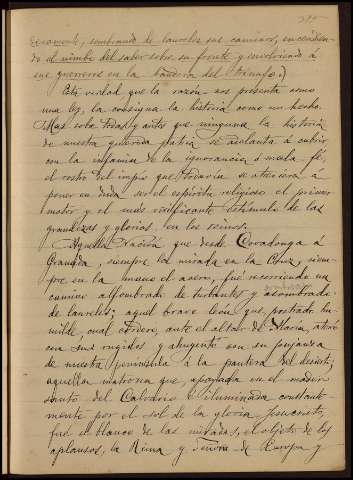 sembrando de laureles sus caminos, encendien-
do el nimbo del saber sobre su frente y envolviendo á
sus guerreros en la bandera del triunfo.)
Esta verdad que la razón nos presenta como
una ley, la consigna la historia como un hecho.
Mas sobre todas y antes que ninguna la historia
de nuestra querida patria se adelanta á cubrir
con la infamia de la ignorancia ó mala fe,
el rostro del impío que todavía se atreviera á
poner en duda ser el espíritu religioso el primer
motor y el más vivificante estímulo de las
grandezas y glorias, en los reinos.
Aquella Nación que desde Covadonga á
Granada, siempre la mirada en la Cruz, siem-
pre en la mano el acero, fué recorriendo un
camino alfombrado de turbantes y
de laureles; aquel bravo león que, postrado hu-
milde, cual cordero, ante el altar de María, aterró
con sus rugidos y ahuyentó con su pujanza
de nuestra península á la pantera del desierto;
aquella matrona que apoyada en el madero
santo del Calvario é iluminada constante-
mente por el sol de la gloria Jesucristo,
fué el blanco de las miradas, el objeto de los
aplausos, la Reina y Señora de Europa y